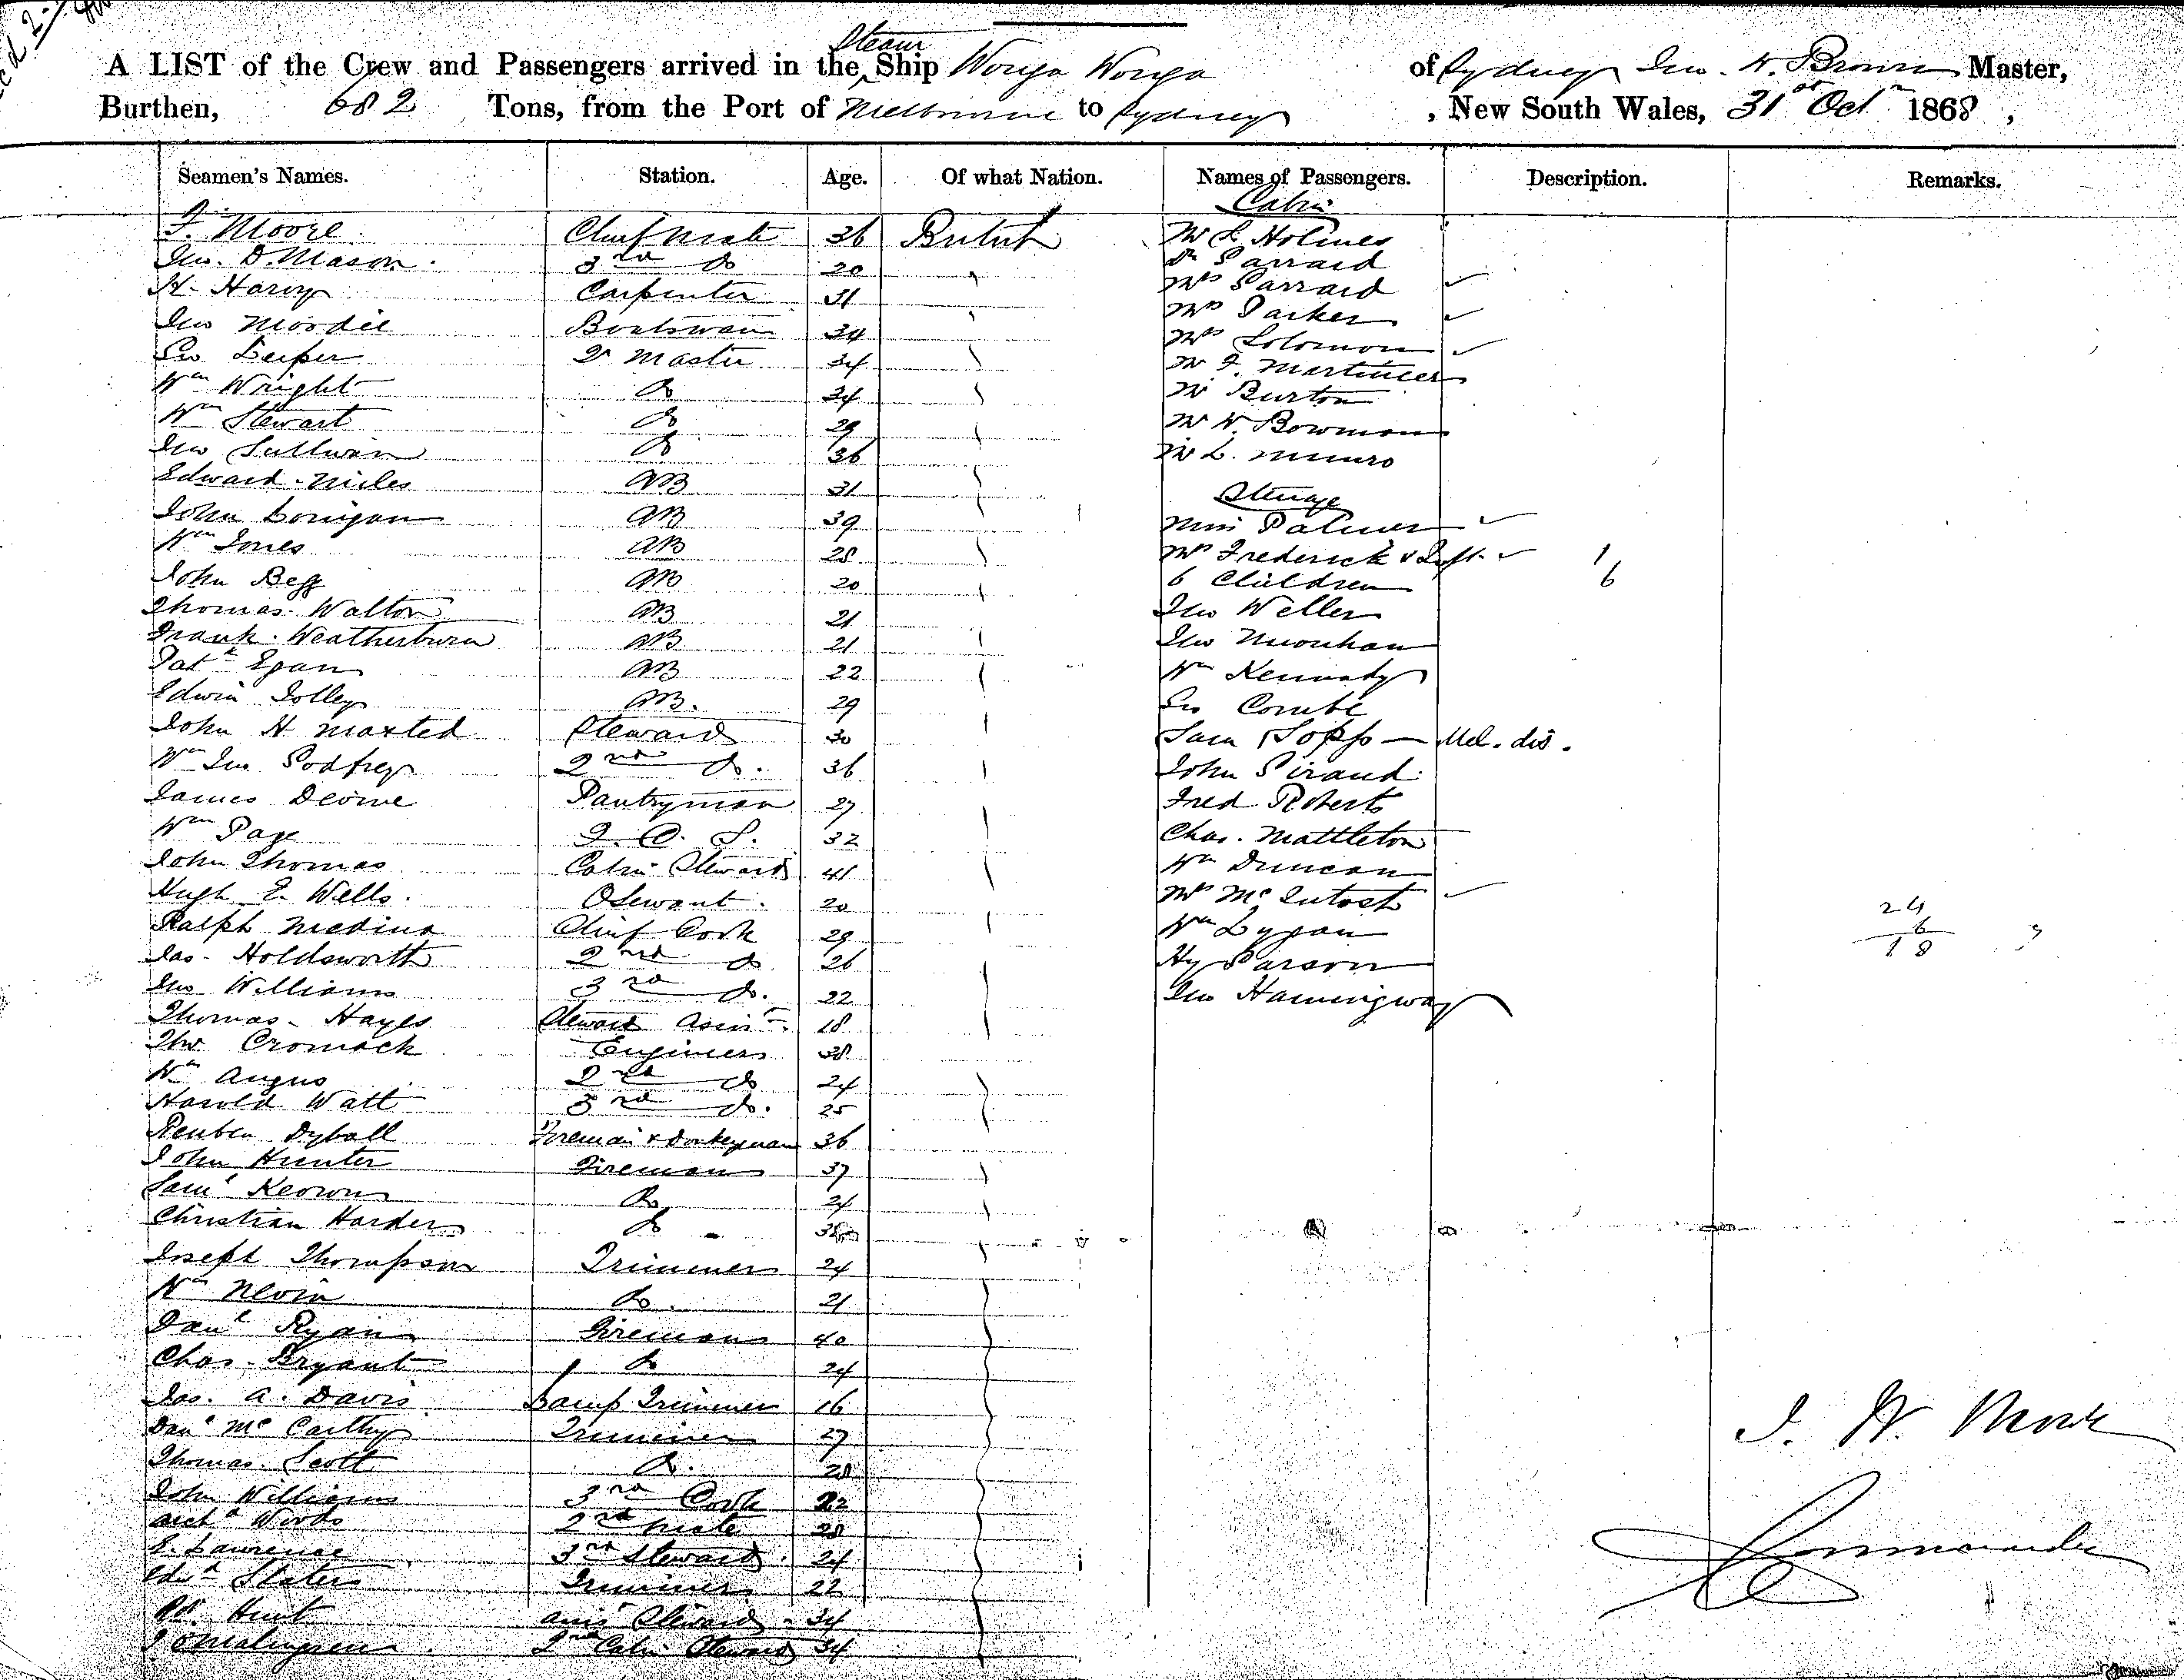 A LIST of the Crew and Passengers arrived in the Steam Ship Wonga Wonga of Sydney Jno. H. Brown Master,
Burthen, 682 Tons, from the Port of Melbourne to Sydney, New South Wales, 31st Oct 1868,
Seamen's Names. Station. Age. Of what Nation. Names of Passengers. Description. Remarks.
Cabin
Moore Chief Mate 36 British Mr Holmes
Jno. D. Mason 3rd Do 20 Garrard
H. Harvy Carpenter 31 Mrs Garrard
Jno Moodie Boatswain 34 Mrs Parker
Geo Leiper Qr Master 34 Mrs Solomon
Wm Wright Do 34 Mr F. Martineer
Wm Stewart Do 29 Mr Burton
Jno Sullivan Do 36 Mr W. Bowman
Edward Miles AB 31 Mr L. Munro
Steerage
John Lonigan AB 39 Miss Palmer
Wm Jones AB 28 Mrs Frederick & Inft. 1
John Begg AB 20 6 Children 6
Thomas Walton AB 21 Jno Weller
Frank Weatherburn AB 21 Jno
Patk Egan AB 22 Wm Kennedy
Edwin Jolley AB. 29 Geo Combe
John H Maxted Steward 30 Sam Topp — Mel. dis.
Wm Jno Godfrey 2nd Do. 36 John Giraud
James Devine Pantryman 27 Fred Roberts
Wm Page 32 Chas. Mattleton
John Thomas Cabin Steward 41 Wm Duncan
Hugh E. Wells 20 Mrs McIntosh
Ralph Medina Chief Cook 29 Wm Lygan
24
6
18
Jas. Holdsworth 2nd Do 26 Hy Parson
Jno Williams 3rd Do. 22 Jno Hamingway
Thomas Hayes Steward Assist 18
Cromack Engineer 38
Wm Angus 2nd Do 24
Harold Watt 3rd Do. 25
Reuben Dyball Foreman & Donkeyman 36
John Hunter Fireman 37
Saml Keown Do 24
Christian Harder Do
Joseph Thompson Trimmer 24
Wm Nevin Do. 21
Danl Ryan Fireman 40
Chas. Bryant Do 24
Jas. A. Davis Lamp Trimmer 16
Danl McCarthy Trimmer 27
Thomas Scott Do. 28
John Williams 3rd Cook 22
Archd Woods 2nd Mate 28
E. Lawrence 3rd Steward 24
Edwd Slater Trimmer 22
Hunt Assist Steward 34
2nd Cabin Steward 34
Commander